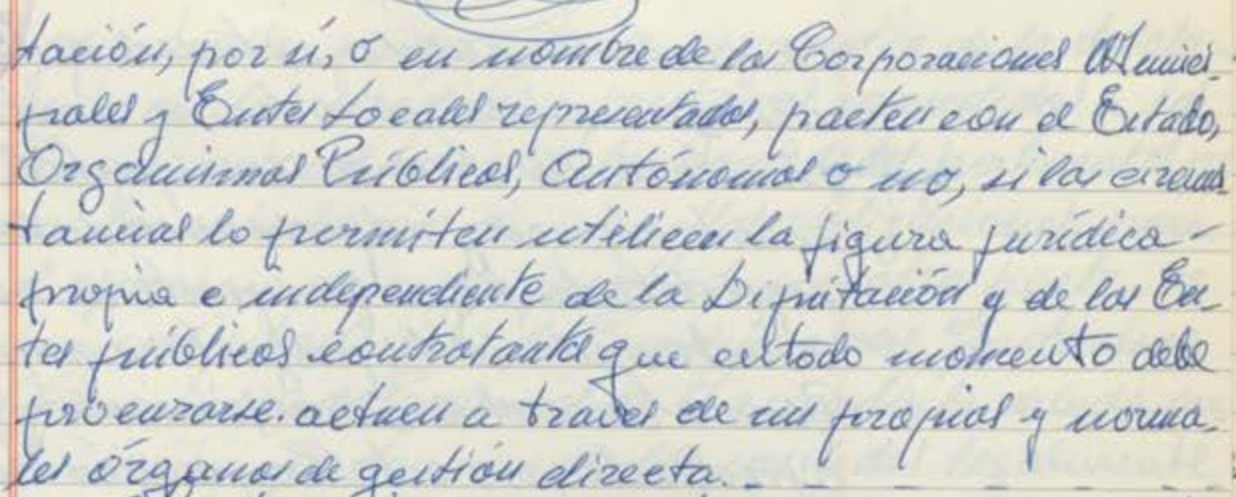 tación, por sí, o en nombre de las Corporaciones Munici-
pales y Entes Locales representados, pacten con el Estado,
Organismos Públicos, Autónomos o no, si las circuns
tancias lo permiten utilicen la figura jurídica -
propia e independiente de la Diputación y de los En-
tes públicos contratantes que en todo momento debe
procurarse. actuen a través de sus propios y norma-
les órganos de gestión directa. - - - - -